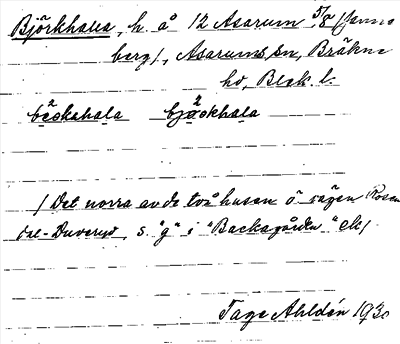 Björkhala, h. å 12 Asarum 5/8 (Janne
berg/, Asarums sn, Bräkne
hd, Blek. l.
bæ̀okahala bjæ̀okhala
/ Det norra av de två husen ö vägen Rosen
dal-Duveryd, s. "g" i "Backagården" ek/
Tage Ahldén 1930